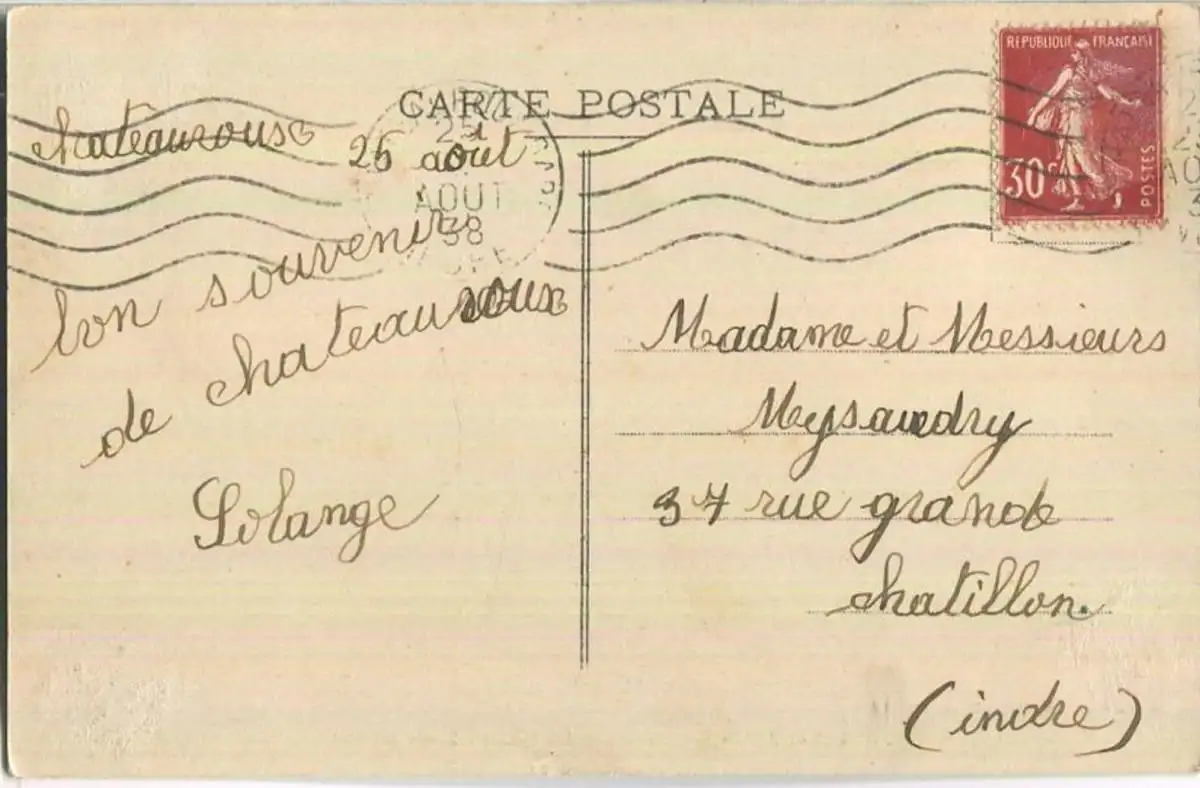 CARTE POSTALE
REPUBLIQUE FRANÇAISE
30c
POSTES
25
AOUT
38
chateauroux 26 août
bon souvenir
de chateauroux
Solange
Madame et Messieurs
37 rue grande
chatillon.
(indre)